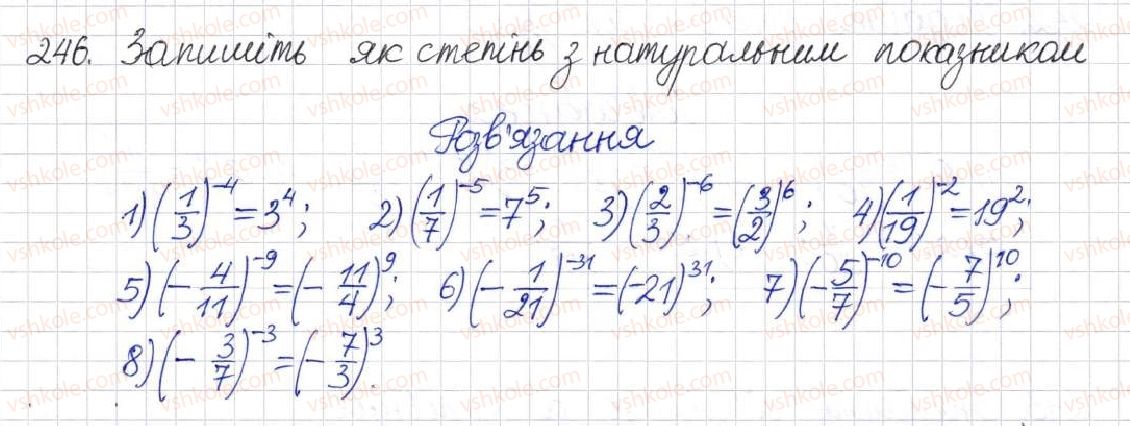 246. Запишіть як степінь з натуральним показником
Розв'язання
1) (1/3)^-4 = 3^4; 2) (1/7)^-5 = 7^5; 3) (2/3)^-6 = (3/2)^6; 4) (1/19)^-2 = 19^2;
5) (- 4/11)^-9 = (- 11/4)^9; 6) (- 1/21)^-31 = (-21)^31; 7) (- 5/7)^-10 = (- 7/5)^10;
8) (- 3/7)^-3 = (- 7/3)^3.